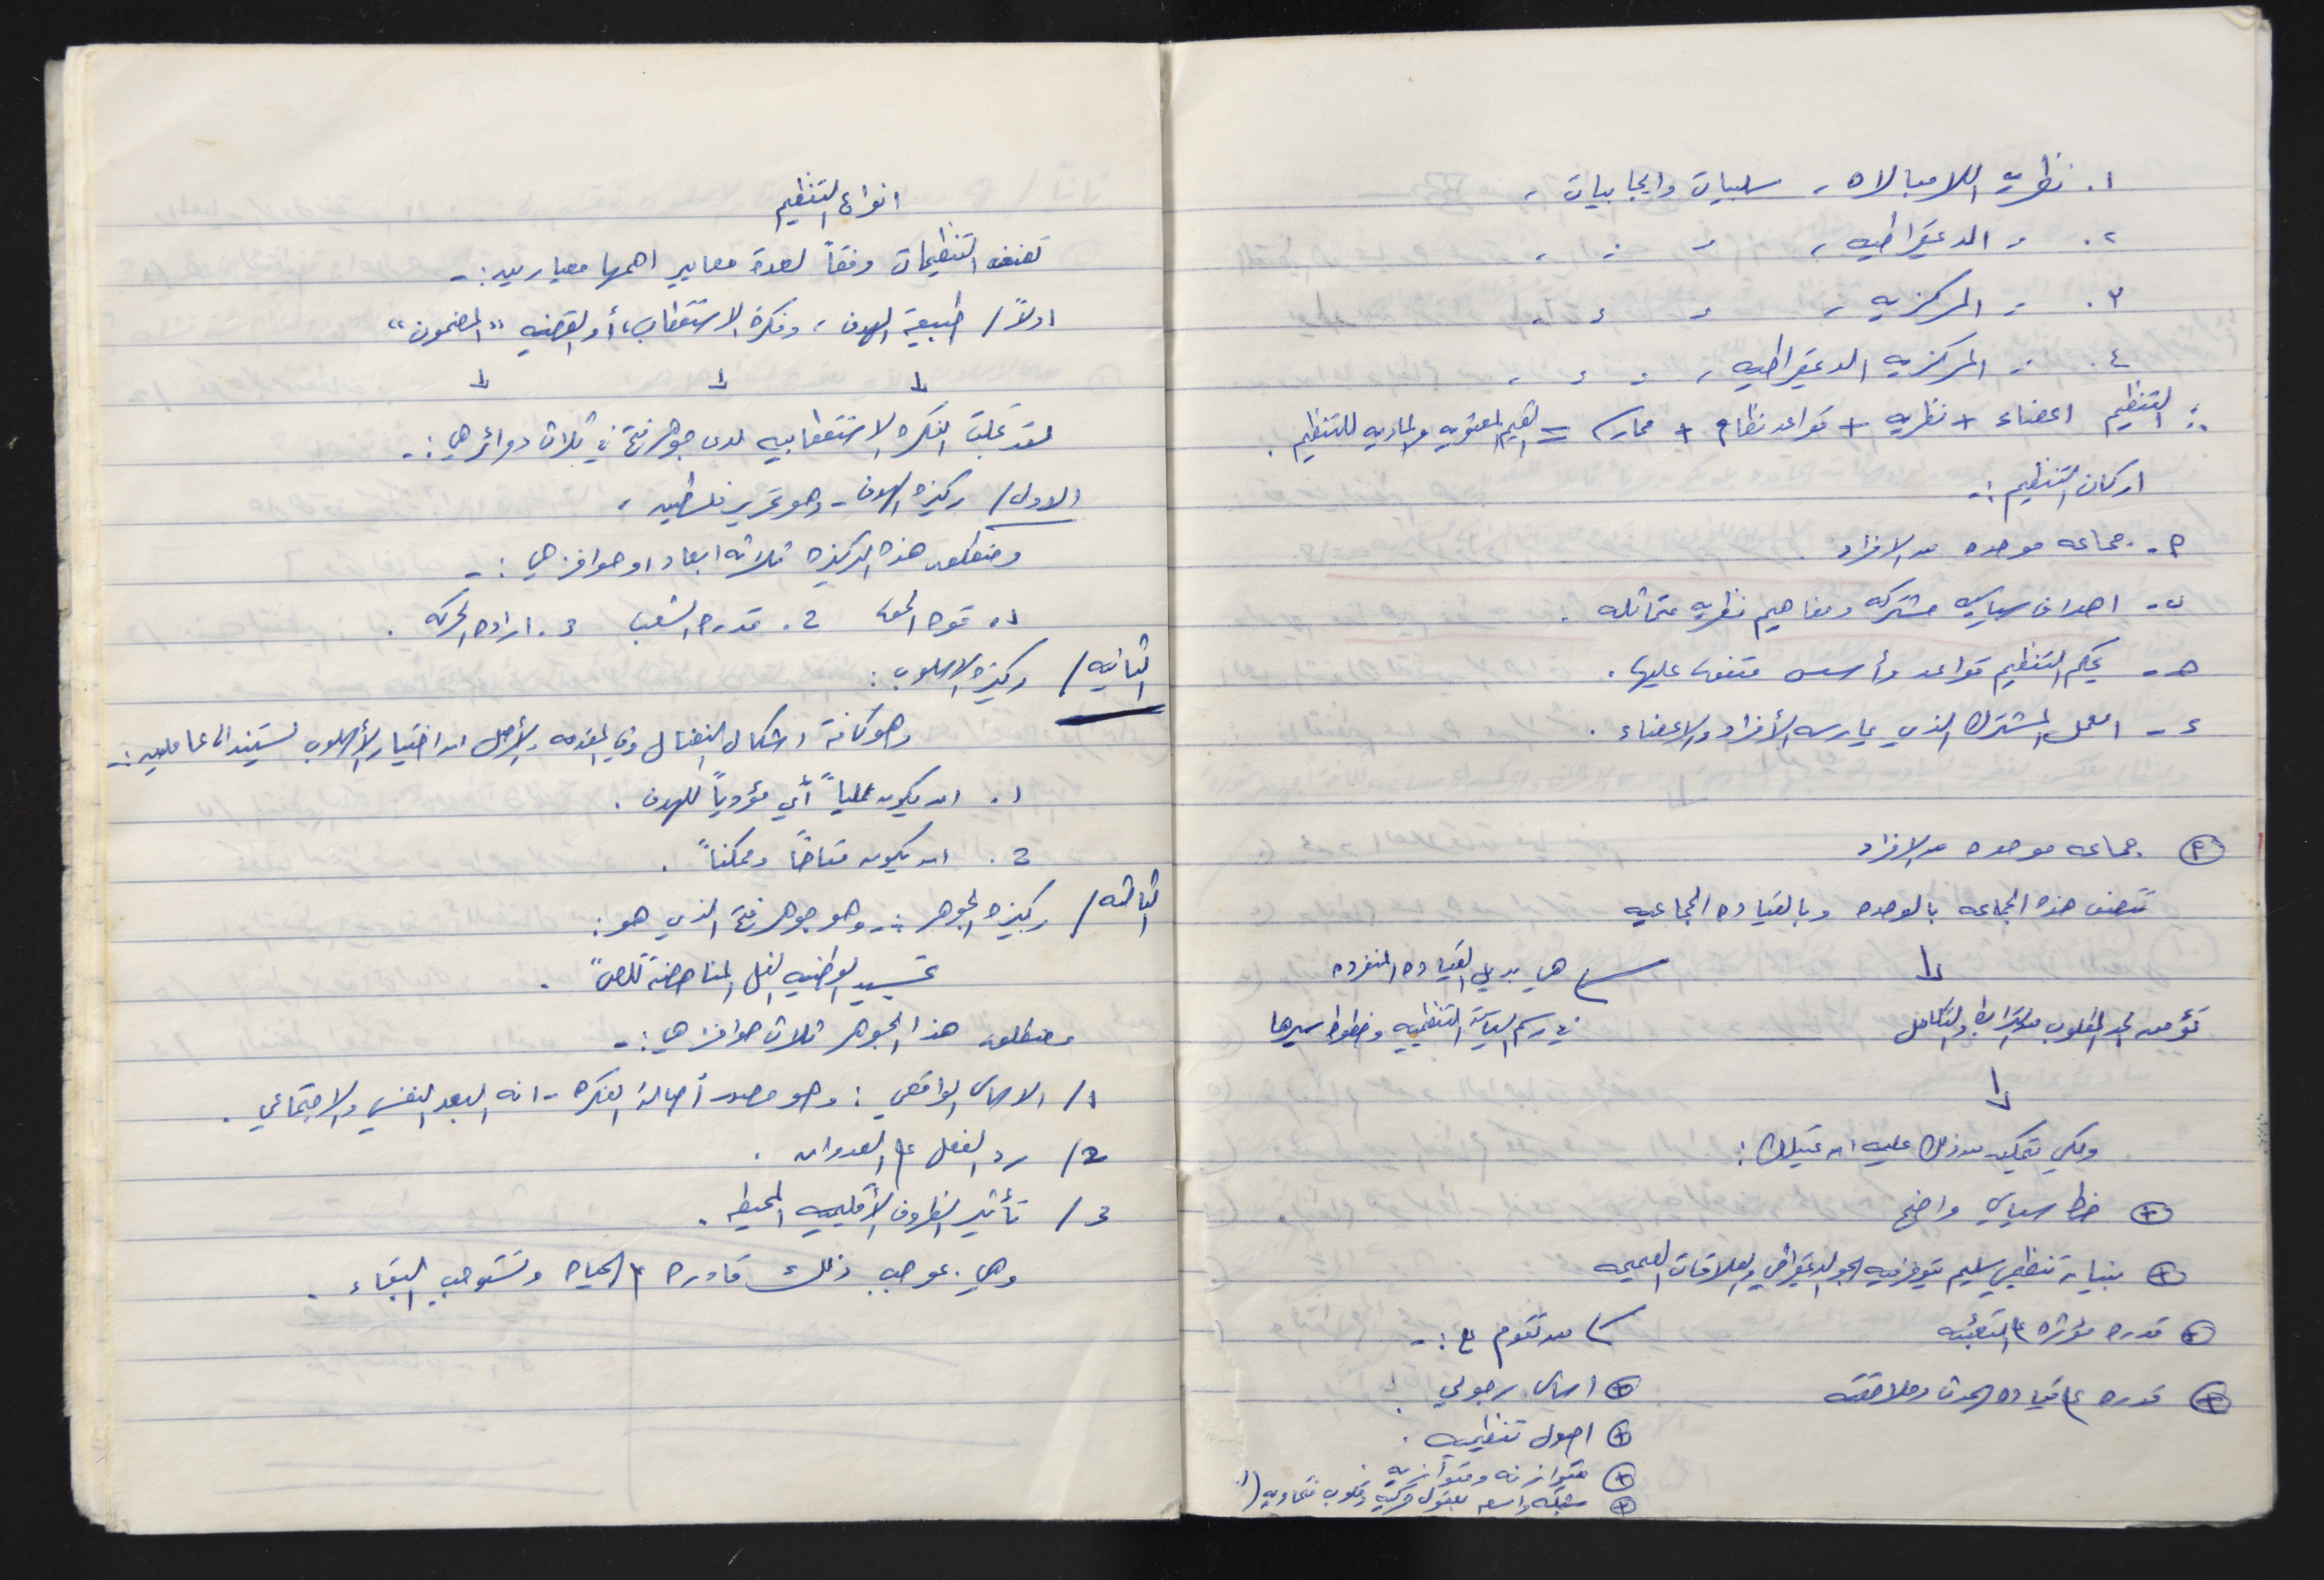 ١. نظريه اللامبالاه ، سلبيات وايجابيات ،
٢. ، الديمقراطيه ، ، ، ،
٣. ، المركزيه ، ، ، ،
٤. ، المركزيه الديمقراطيه ، ، ، ،
∴ التنظيم اعضاء + نظريه + قواعد نظام + ممارسه = القيم المعنويه والماديه للتنظيم .
اركان التنظيم :-
أ- جماعه موحده من الافراد .
ب- اهداف سياسيه مشتركه ومفاهيم نظريه متماثله .
ج- يحكم التنظيم قواعد وأسس متفق عليها .
د- العمل المشترك الذي يمارسه الأفراد والاعضاء .
أ جماعه موحده من الافراد
تتصف هذه الجماعه بالوحده وبالقياده الجماعيه
هي بديل القياده المنفرده
تؤمن الحد المطلوب من الترابط والتكامل
في رسم السياسة التنظيميه وخطوط سيرها
ولكي تتمكن من ذلك عليه ان تمتلك :
+ خط سياسي واضح
+ بنيان تنظيمي سليم تتوفر فيه الجو الديمقراطي والعلاقات الصميمه
+ قدره مؤثره على التعبئه
من تقوم على :-
+ قدره على قياده الحدث وملاحقته
+ اساس رجولي .
+ اصول تنظيميه .
+ متوازنه ومتوازيه .
+ شبكه واسعه بعقول وقلوب
انواع التنظيم
تصنف التنظيمات وفقاً لعدة معايير اهمها معيارين :-
اولاً / طبيعة الهدف ، وفكرة الاستقطاب ، أو القضيه "المضمون"
لقد تمثلت الفكره الاستقطابيه لدى جوهر فتح في ثلاث دوائر هي :-
الاولى / ركيزه الهدف - وهو تحرير فلسطين ،
ومنطلق هذه الركيزه ثلاثه ابعاد او حوافز هي :-
1. قوه الحق 2. قدره الشعب 3. اراده الحركه .
الثانيه / ركيزه الاسلوب :
وهو كافة اشكال النضال وفي المقدمه والأصل ان اختيار الأسلوب يستند الى عاملين :-
1. ان يكون عملياً أي مؤدياً للهدف .
2. ان يكون متاحاً وممكناً .
الثالثه / ركيزه الجوهر :- وهو جوهر فتح الذي هو :
تجسيد الوطنيه لفعل المناهضة
ومنطلق هذا الجوهر ثلاث حوافز هي :-
1/ الاساس الواقعي : وهو مصدر أصالة الفكره - انه البعد النفسي والاجتماعي .
2/ رد الفعل على العدوان .
3/ تأثير الظروف الأقليميه المحيطه .
وهي بموجب ذلك قادره على الحياه وتستوجب البقاء .